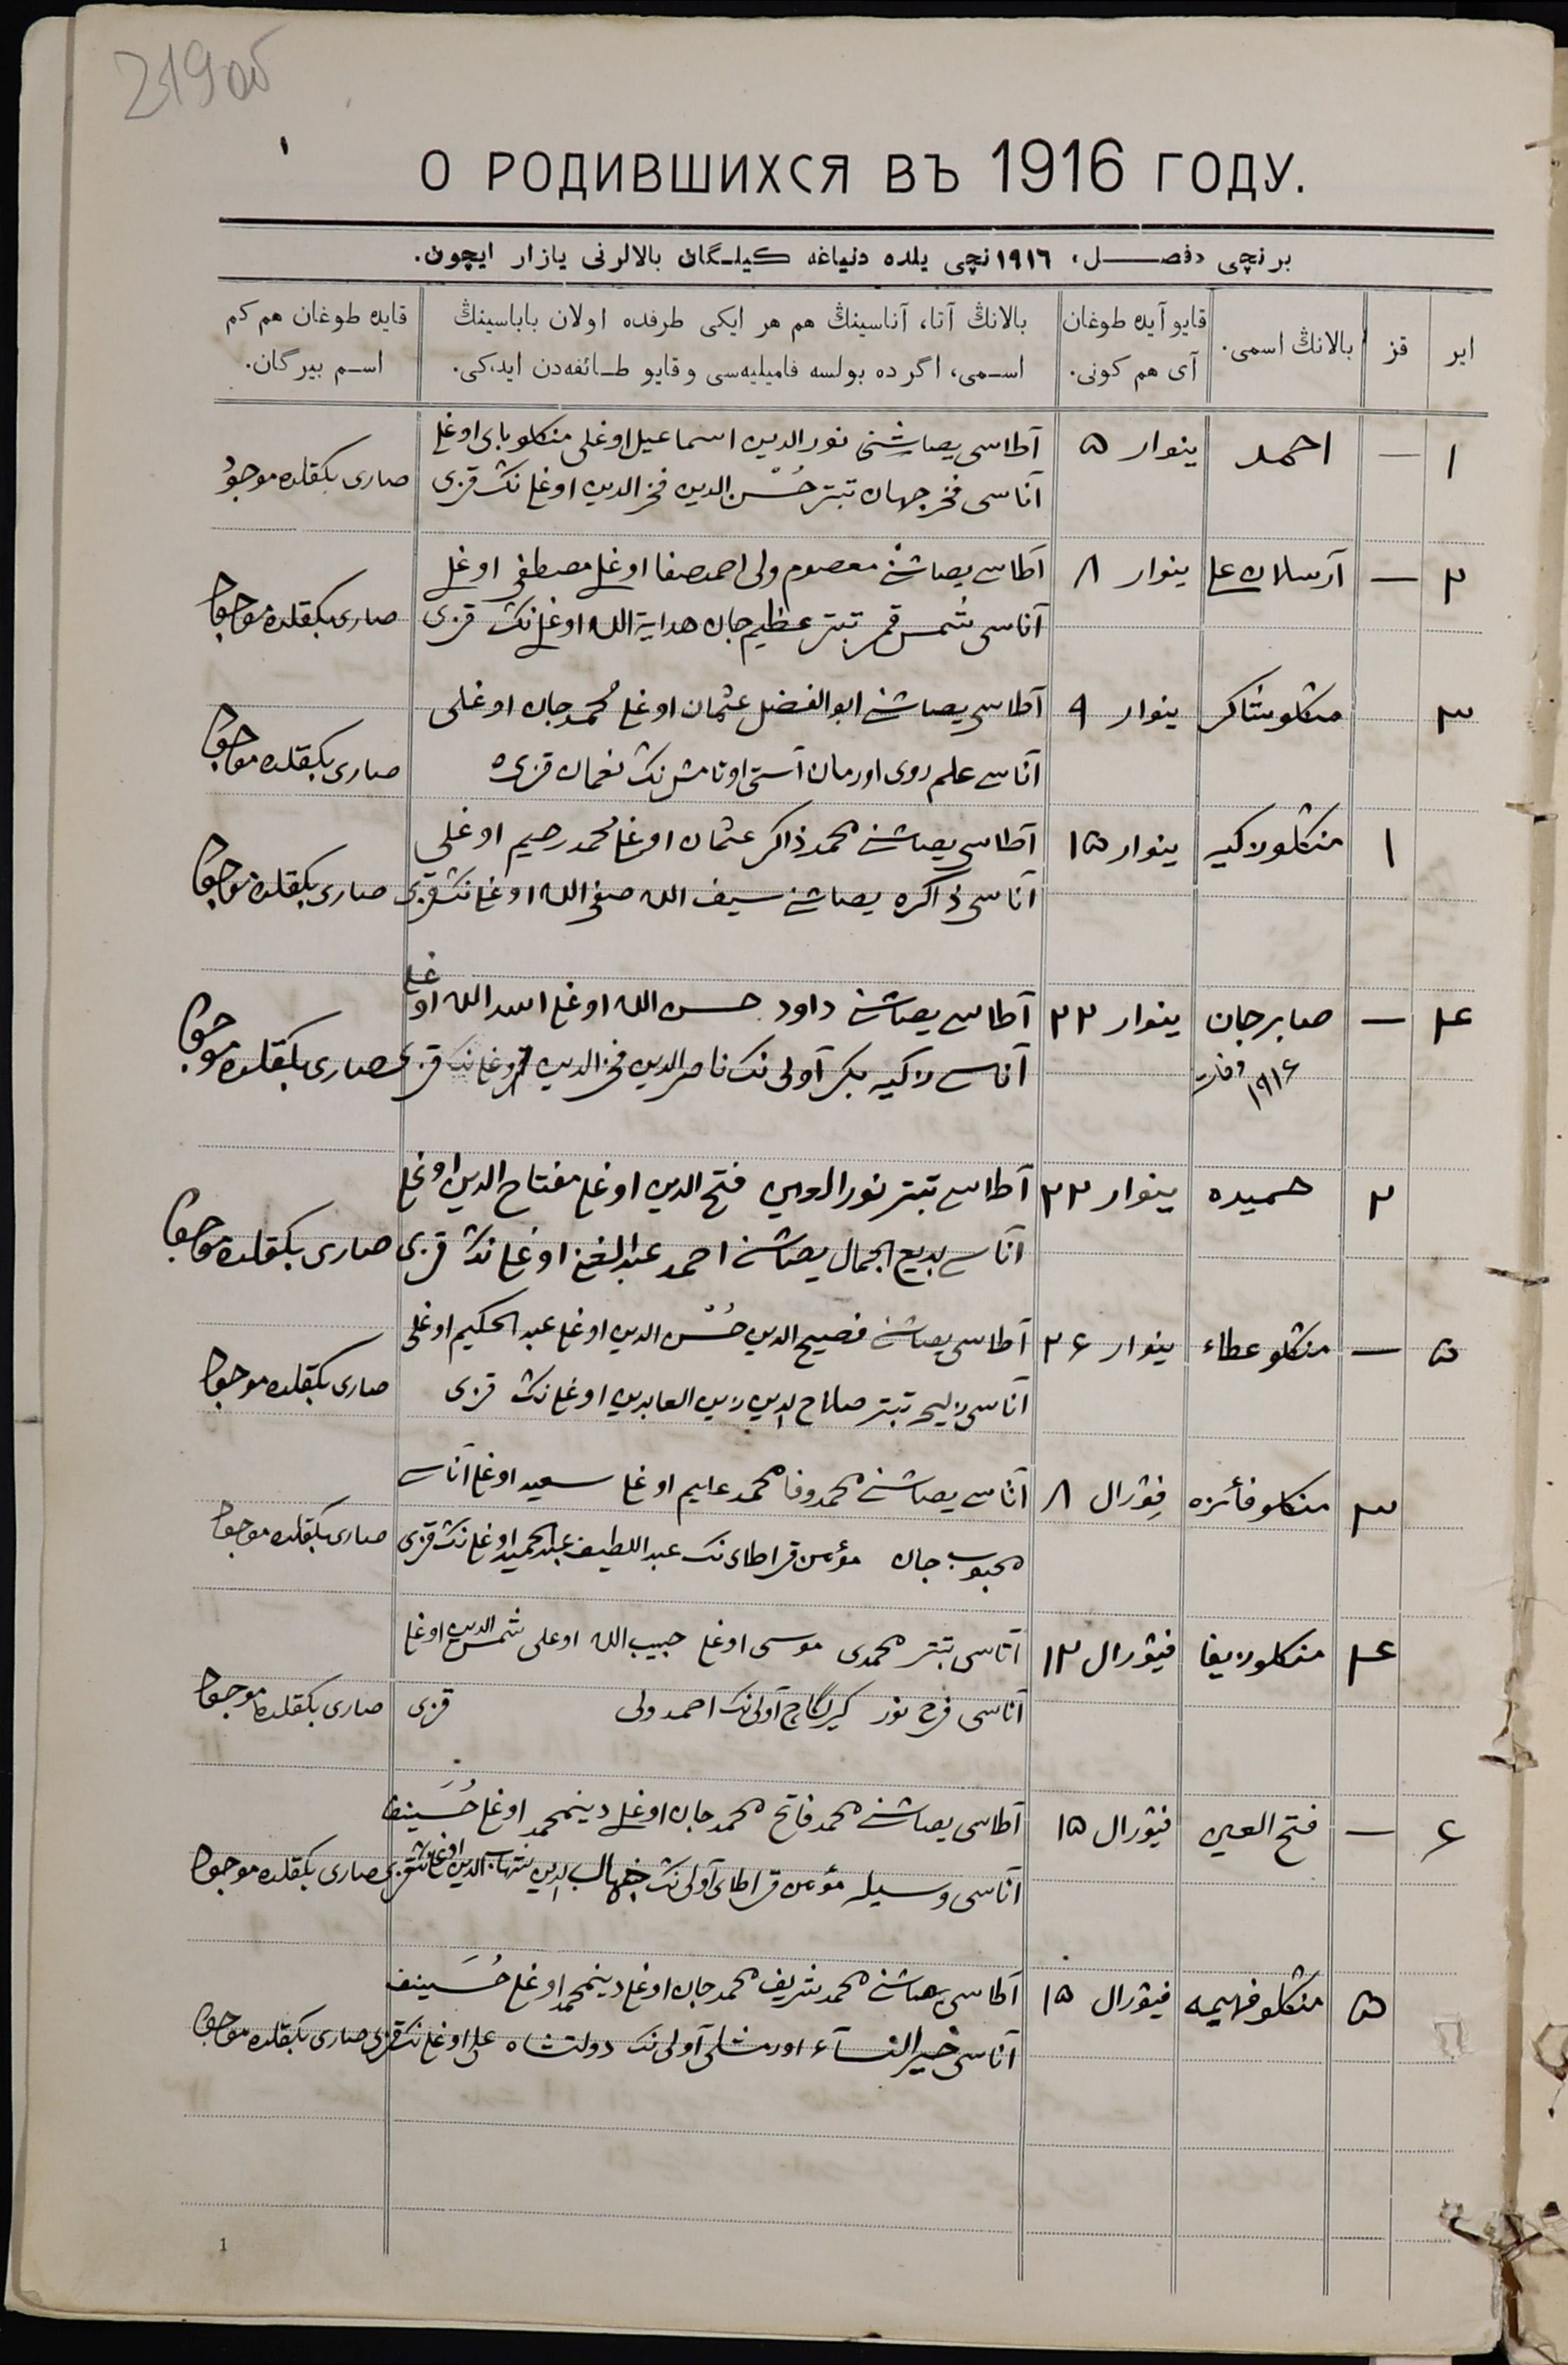 219об
О РОДИВШИХСЯ ВЪ 1916 ГОДУ.
برنچی «فصل» ١٩١٦نچی یلده دنیاغه کیلگان بالالرنی یازار ایچون.
ایر
قز
بالانڭ اسمی.
قایو آیده طوغان
آی هم کونی.
بالانڭ آتا، آناسینڭ هم هر ایکی طرفده اولان باباسینڭ
اسمی، اگر ده بولسه فامیلیه‌سی و قایو طائفه‌دن ایدکی.
قایده طوغان هم کم
اسم بیرگان.
١ — احمد ینوار ۵ آطاسی یصاشنی نورالدین اسماعیل اوغلی منکلوبای اوغلی
آناسی فخرجهان تبتر حُسْن الدین فخرالدین اوغلی نک قزی صاری بکقلده موجود
٢ — آرسلان علی ینوار ٨ آطاسی یصاشنی معصوم ولی احمدصفا اوغلی مصطفی اوغلی
آناسی شمس قمر تبتر عظیم جان هدایة الله اوغلی نک قزی صاری بکقلده
٣ منکلوشاکر ینوار ٩ آطاسی یصاشنی ابوالفضل عثمان اوغلی محمدجان اوغلی
آناسی علم روی اورمان آستی اوتامش نک نعمان قزی صاری بکقلده
١ منکلوزکیه ینوار ١۵ آطاسی یصاشنی محمدذاکر عثمان اوغلی محمدرحیم اوغلی
آناسی ذاکره یصاشنی سیف الله صفی الله اوغلی نک قزی صاری بکقلده
۴ — صابرجان ینوار ٢٢ آطاسی یصاشنی داود حسن الله اوغلی اسدالله اوغلی
وفات ١٩١۶
آناسی زکیه بکر آولی نک ناصرالدین فخرالدین اوغلی نک قزی صاری بکقلده
٢ حمیده ینوار ٢٢ آطاسی تبتر نورالدین فتح الدین اوغلی مفتاح الدین اوغلی
آناسی بدیع الجمال یصاشنی احمد عبدالغنی اوغلی نک قزی صاری بکقلده
۵ — منکلوعطاء ینوار ٢۶ آطاسی یصاشنی فصیح الدین حُسْن الدین اوغلی عبدالحکیم اوغلی
آناسی تبتر صلاح الدین زین العابدین اوغلی نک قزی صاری بکقلده
٣ منکلوفائزه فیۋرال ٨ آتاسی یصاشنی محمدوفا محمدعلیم اوغلی سعید اوغلی آناسی
محبوب جان مؤمن قراطای نک عبداللطیف عبدالحمید اوغلی نک قزی صاری بکقلده
۴ منکلوزیفا فیۋرال ١٢ آتاسی تبتر محمدی موسی اوغلی حبیب الله اوغلی شمس الدین اوغلی
آناسی فرح نور آولی نک احمدولی قزی صاری بکقلده
۶ — فتح العین فیۋرال ١۵ آطاسی یصاشنی محمدفاتح محمدجان اوغلی دینمحمد اوغلی حُسَینف
آناسی وسیله مؤمن قراطای آولی نک شهاب الدین اوغلی نک قزی صاری بکقلده
۵ منکلوفهیمه فیۋرال ١۵ آطاسی یصاشنی محمدشریف محمدجان اوغلی دینمحمد اوغلی حُسَینف
آناسی خیرالنسآء اورمشلی آولی نک دولتشاه علی اوغلی نک قزی صاری بکقلده
1